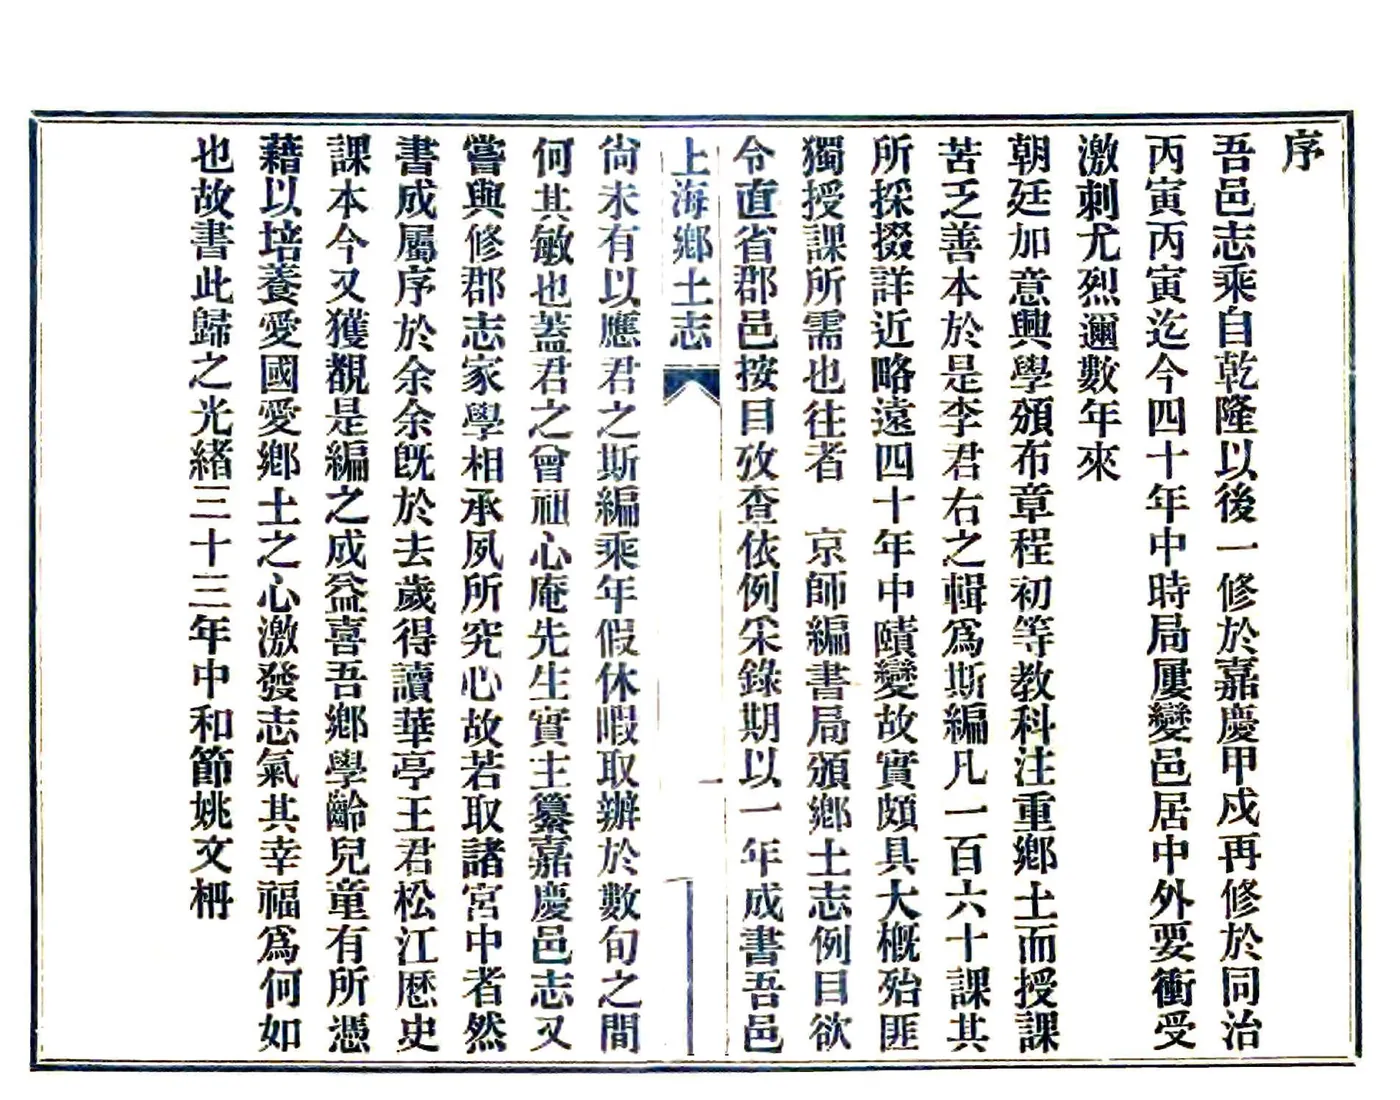 序
吾邑志乘自乾隆以後一修於嘉慶甲戌再修於同治
丙寅丙寅迄今四十年中時局屢變邑居中外要衝受
激刺尤烈邇數年來
朝廷加意興學頒布章程初等教科注重鄉土而授課
苦乏善本於是李君右之輯爲斯編凡一百六十課其
所採掇詳近略遠四十年中賾變故實頗具大概殆匪
獨授課所需也往者　京師編書局頒鄉土志例目欲
令直省郡邑按目攷查依例采錄期以一年成書吾邑
上海鄉土志
一
尙未有以應君之斯編乘年假休暇取辦於數旬之間
何其敏也蓋君之曾祖心庵先生實主纂嘉慶邑志又
嘗與修郡志家學相承夙所究心故若取諸宮中者然
書成屬序於余余旣於去歲得讀華亭王君松江厯史
課本今又獲覩是編之成益喜吾鄉學齡兒童有所憑
藉以培養愛國愛鄉土之心激發志氣其幸福爲何如
也故書此歸之光緒三十三年中和節姚文枬